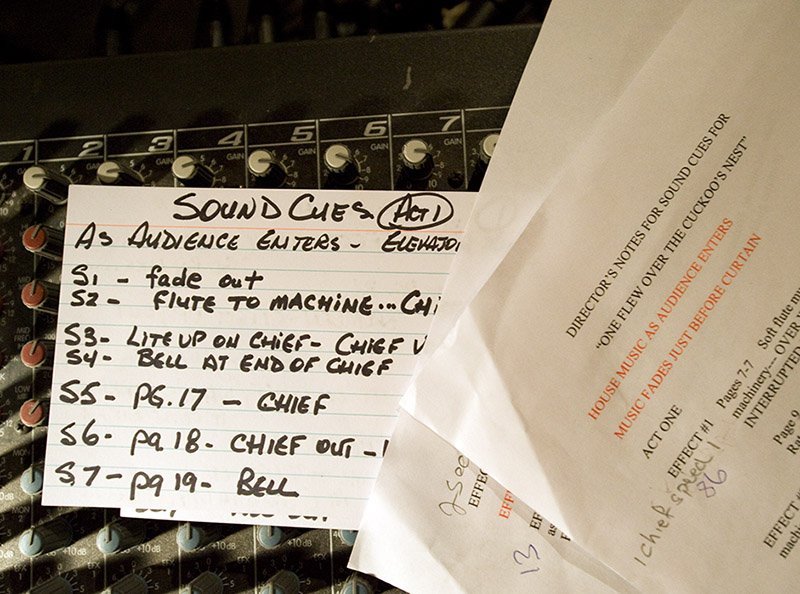 1 2 3 4 5 6 7
GAIN GAIN GAIN GAIN GAIN GAIN
SOUND CUES ACT 1
AS AUDIENCE ENTERS - ELEVATO
S1 - fade out
S2 - FLUTE TO MACHINE... CHI
S3 - LITE UP ON CHIEF - CHIEF
S4 - BELL AT END OF CHIEF
S5 - PG. 17 - CHIEF
S6 - pg 18 - CHIEF OUT -
S7 - pg 19 - BELL
DIRECTOR'S NOTES FOR SOUND CUES FOR
"ONE FLEW OVER THE CUCKOO'S NEST"
HOUSE MUSIC AS AUDIENCE ENTERS
MUSIC FADES JUST BEFORE CURTAIN
ACT ONE
EFFECT #1 Pages 7-7 Soft flute m
machinery--- OVER
INTERRUPTED
Page 9
1 chief speed 1
86
EFFECT #
mach
EFFEC
EFF
13